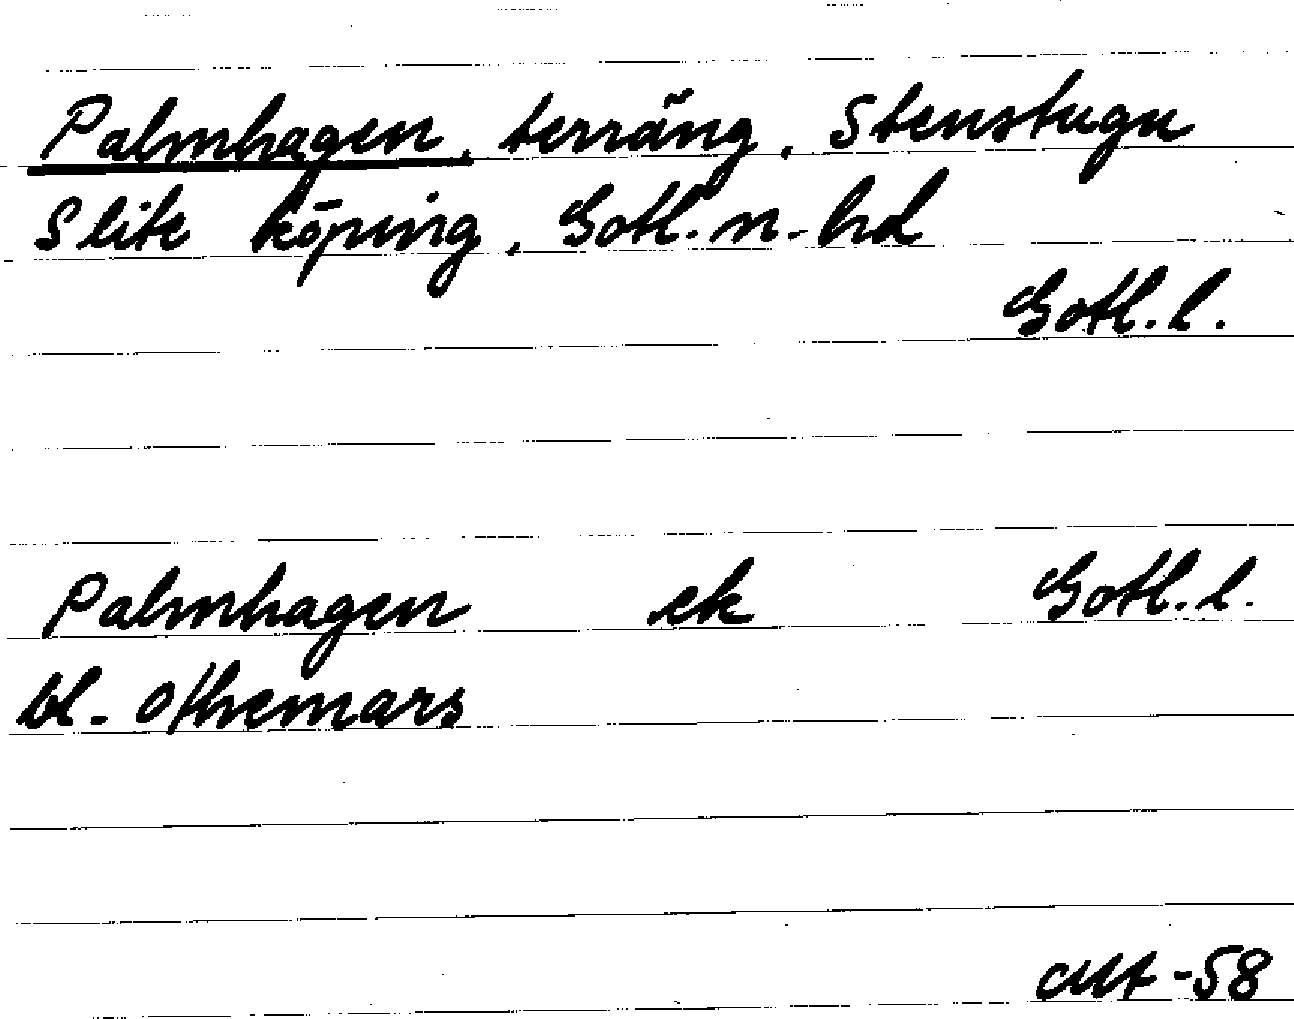 Palmhagen, terräng, Stenstugu
Slite köping, Gotl. n. hd
Gotl. l.
Palmhagen ek Gotl. l.
bl. Othemars
-58